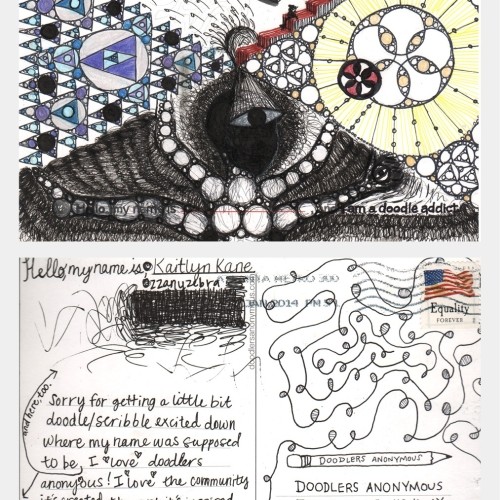 Hello, my name is
I am a doodle addict.
Hello, my name is Kaitlyn Kane
@zzanyzebra
METRO 300
JAN 2014 PM
Equality
FOREVER
and here too.
Sorry for getting a little bit
doodle/scribble excited down
where my name was supposed
to be, I love doodlers
anonybus! I love the community
DOODLERS ANONYMOUS
DOODLERS ANONYMOUS